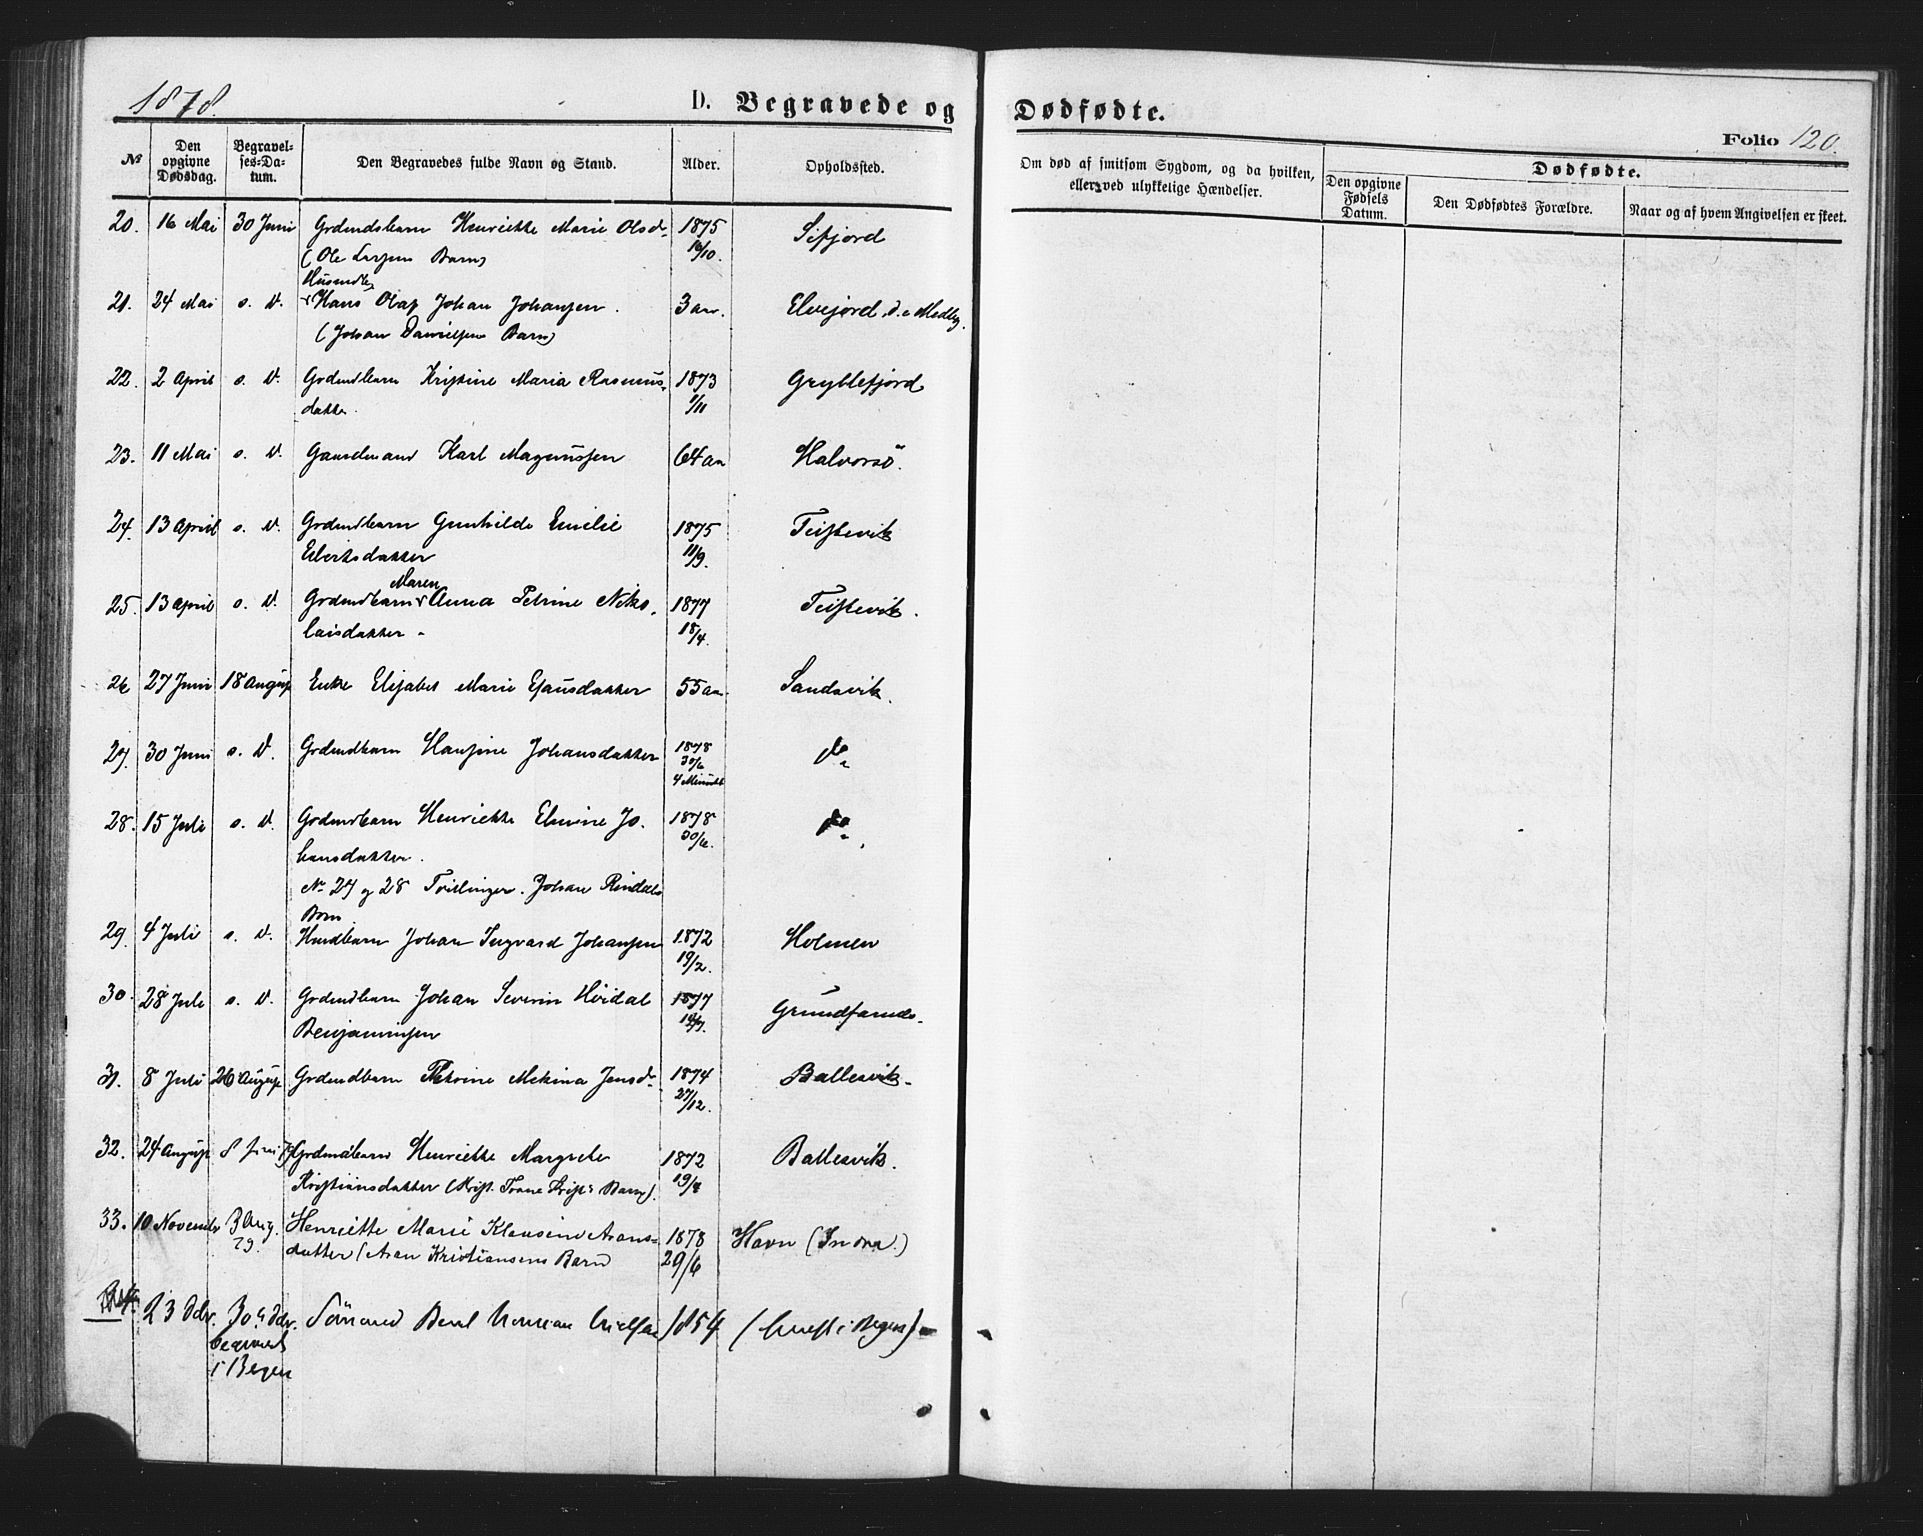 1878.
D. Begravede og Dødfødte.
Folio 120.
№
Den opgivne Dødsdag.
Begravel-ses-Da-tum.
Den Begravedes fulde Navn og Stand.
Alder.
Opholdssted.
Om død af smitsom Sygdom, og da hvilken, eller ved ulykkelige Hændelser.
Dødfødte.
Den opgivne Fødsels Datum.
Den Dødfødtes Forældre.
Naar og af hvem Angivelsen er skeet.
20. 16 Mai 30 Juni Grdmdsbarn Henriette Marie Olsd. 1875 Sifjord
(Ole Larsens Barn) 16/10.
Husmdb.
21. 24 Mai s. D. Hans Olaf Johan Johansen. 3 aar. Elvejord, Medby.
(Johan Danielsens Barn)
22. 2 April s. D. Grdmdbarn Kristine Maria Rasmus- 1873 Gryllefjord
datter. 1/11
23. 11 Mai s. D. Gaardmand Karl Magnussen 64 aar Halvorsö.
24. 13 April s. D. Grdmdbarn Gunhilde Emilie 1875 Teistevik
Edvertsdatter 11/9.
Maren
25. 13 April s. D. Grdmdbarn Anna Petrine Niko- 1877 Teistevik.
laisdatter. 18/4.
26 27 Juni 18 August Enke Elisabet Marie Esausdatter 55 aar. Sandsvik.
27. 30 Juni s. D. Grdmdbarn Hansine Johansdatter 1878 do
30/6
4 Minutter
28. 15 Juli s. D. Grdmdbarn Henriette Elvine Jo- 1878 do
hansdatter. 30/6.
№ 27 og 28 Tvillinger. Johan Rindals
Børn
29. 4 Juli s. D. Husdbarn Johan Ingvard Johansen 1872 Holmen
19/2.
30. 28 Juli s. D. Grdmdbarn Johan Severin Høidal 1877 Grundfarnds.
Benjaminsen
31. 8 Juli 26 August Grdmdbarn Petrine Mekina Jensd. 1874 Ballesvik.
27/12.
32. 24 August 8 Juni Grdmdbarn Henriette Margrete 1872 Ballesvik.
Kristiansdatter (Krist. Trane Krist's Barn). 19/4
33. 10 Novembr 3 Aug. 79. Henriette Marie Klausine Arons- 1878 Havn (Indre.)
datter (Aron Kristiansens Barn 29/6
34. 23 Dcbr. 30 Dcbr. Sömand 1854 (i Bergen)
begravet
i Bergen